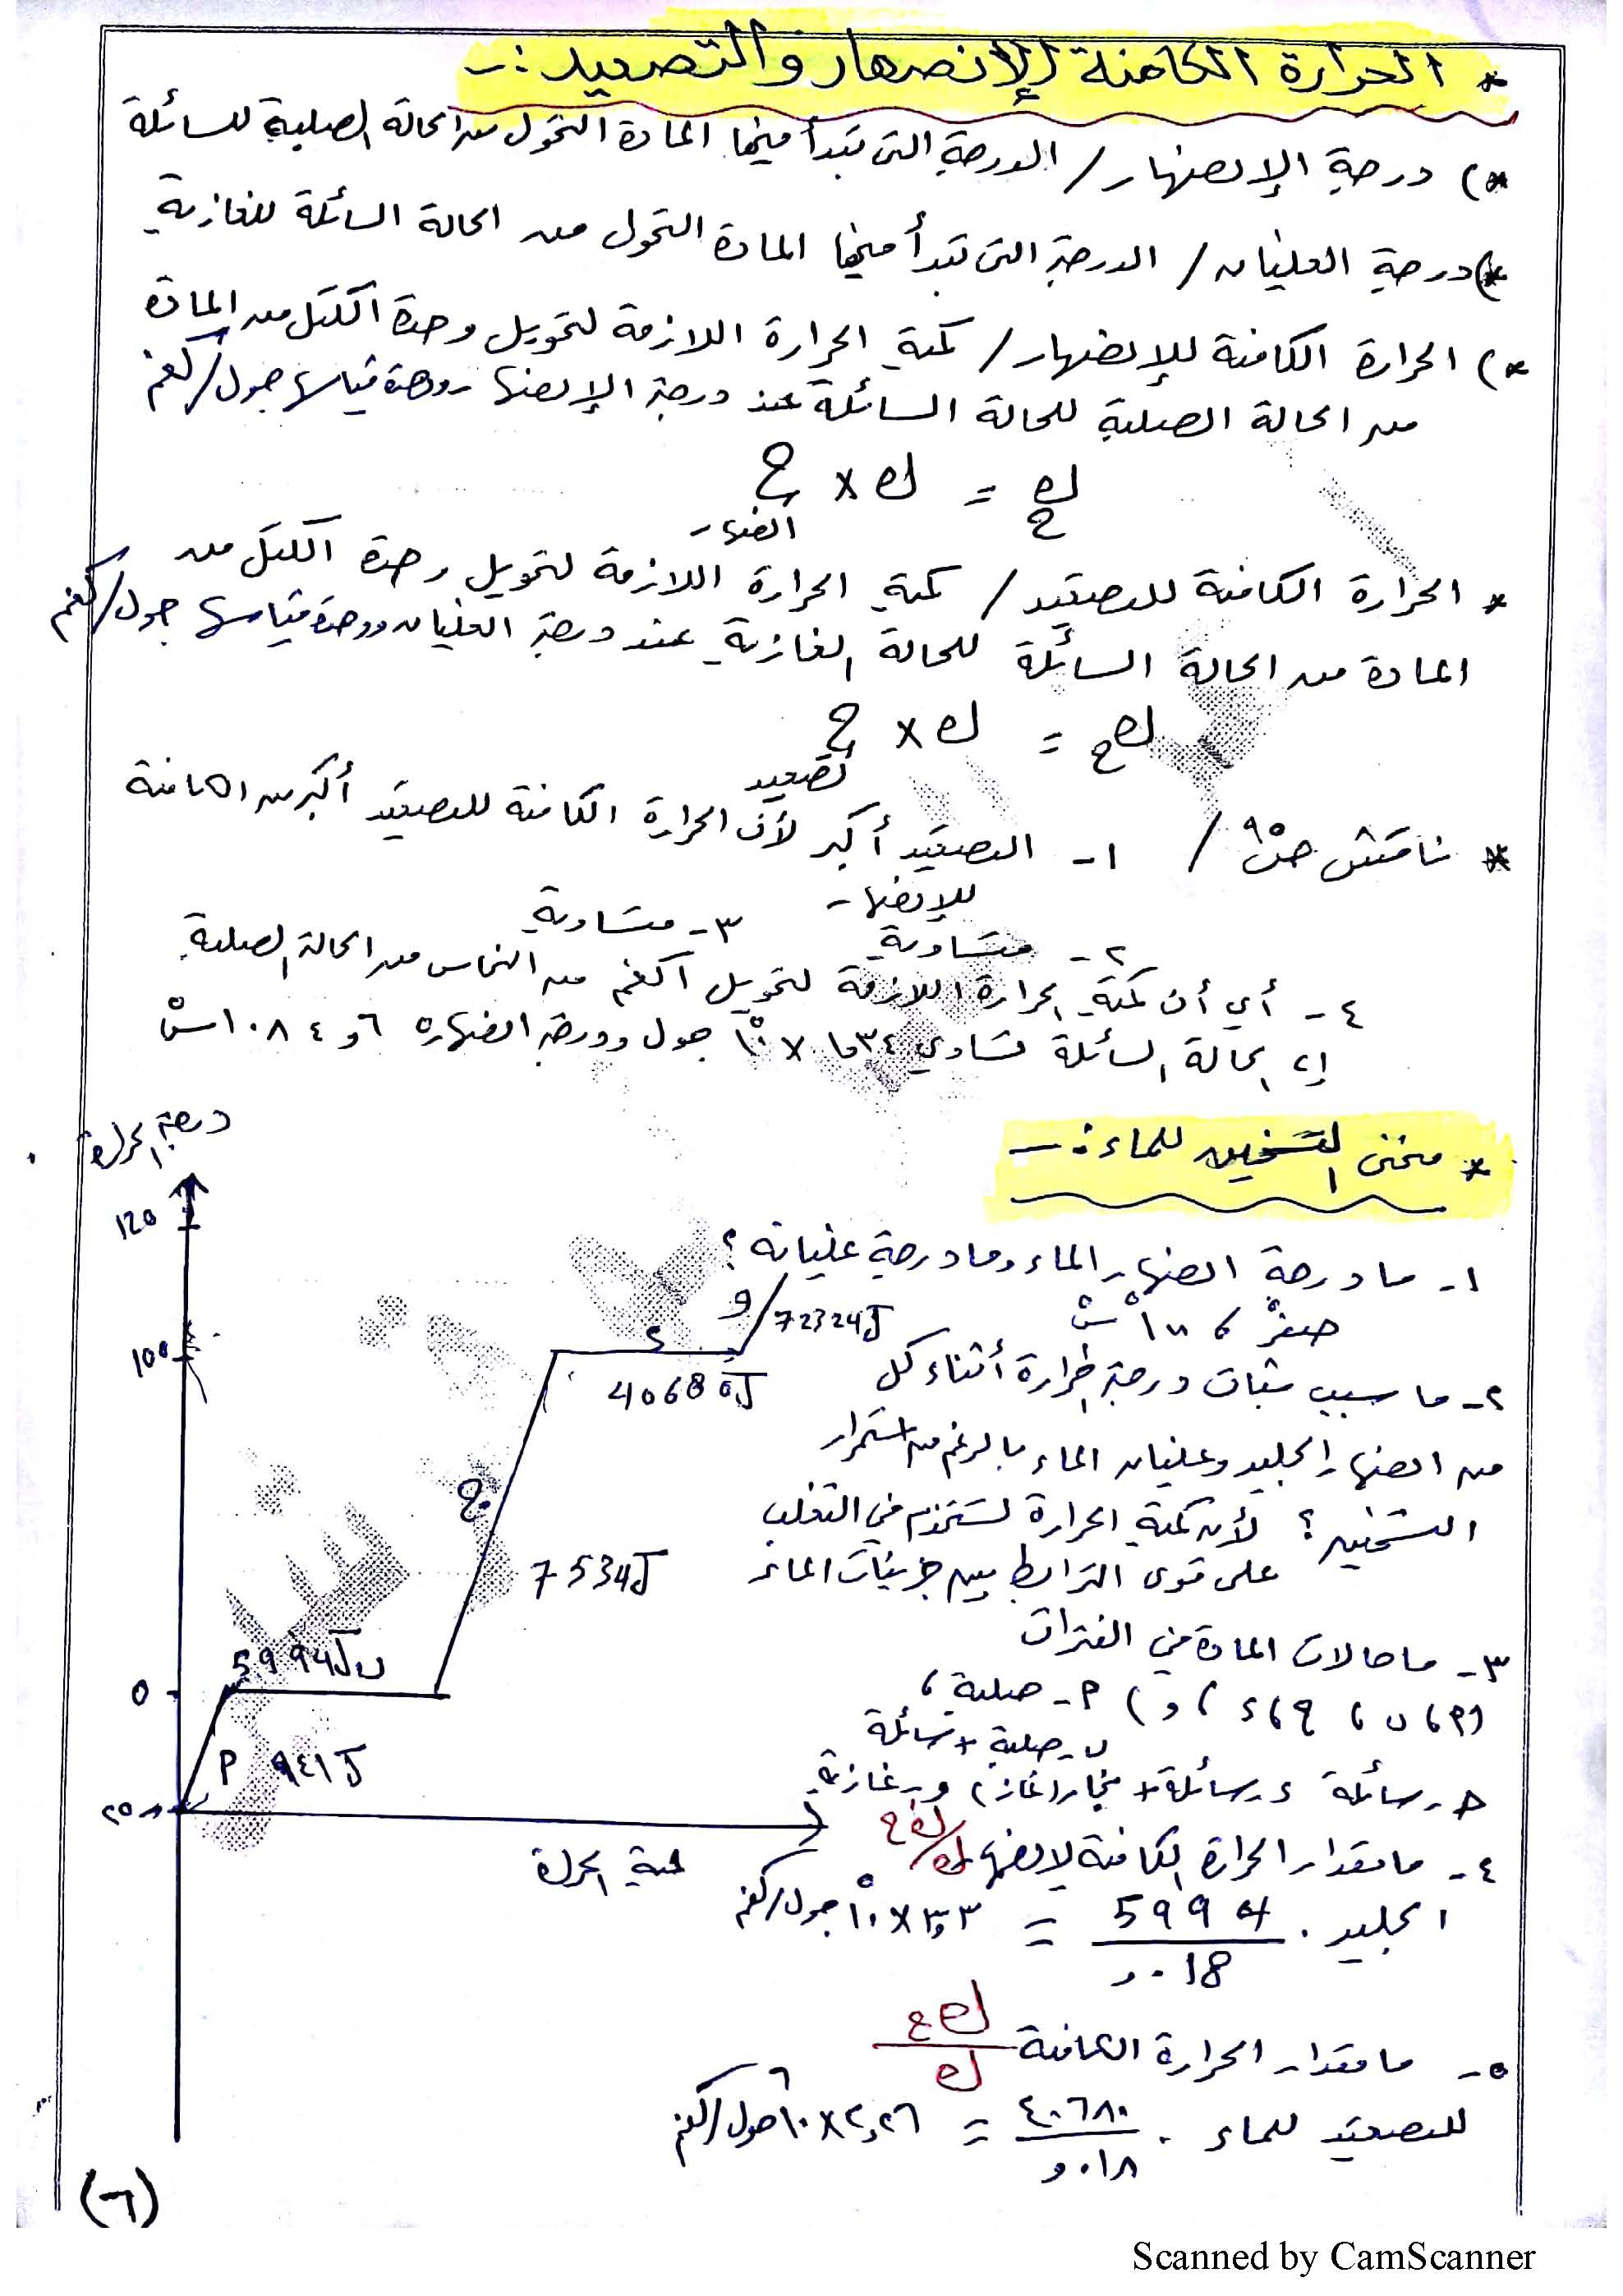 * الحرارة الكامنة للإنصهار والتصعيد :-
*) درجة الإنصهار / الدرجة التي تبدأ فيها المادة التحول من الحالة الصلبة للسائلة
*) درجة الغليان / الدرجة التي تبدأ فيها المادة التحول من الحالة السائلة للغازية
*) الحرارة الكامنة للإنصهار / كمية الحرارة اللازمة لتحويل وحدة الكتل من المادة
من الحالة الصلبة للحالة السائلة عند درجة الإنصهار ووحدة قياسها جول/كغم
كح = ك × ح انصهار
* الحرارة الكامنة للتصعيد / كمية الحرارة اللازمة لتحويل وحدة الكتل من
المادة من الحالة السائلة للحالة الغازية عند درجة الغليان ووحدة قياسها جول/كغم
كح = ك × ح تصعيد
* ناقش ص٩ / ١- التصعيد أكبر لأن الحرارة الكامنة للتصعيد أكبر من الكامنة
للإنصهار
٢- متساوية ٣- متساوية
٤- أي أن كمية الحرارة اللازمة لتحويل ١كغم من النحاس من الحالة الصلبة
إلى الحالة السائلة تساوي ١,٣٤ × ١٠٥ جول ودرجة انصهاره ١٠٨٤,٦ سْ
* منحنى التسخين للماء :-
درجة الحرارة
120
100
0
٢٥-
كمية الحرارة
أ ٩٤١ J
ب 5994 J
ج 7534 J
د 40680 J
و 72324 J
١- ما درجة انصهار الماء وما درجة غليانه ؟
صفرْ ، ١٠٠ْ سْ
٢- ما سبب ثبات درجة الحرارة أثناء كل
من انصهار الجليد وغليان الماء بالرغم من استمرار
التسخين ؟ لأن كمية الحرارة تستخدم في التغلب
على قوى الترابط بين جزيئات الماء
٣- ما حالات المادة في الفترات
(أ ، ب ، ج ، د ، و) أ- صلبة ،
ب- صلبة + سائلة
ج- سائلة د- سائلة + بخار (غاز) و- غازية
٤- ما مقدار الحرارة الكامنة لإنصهار كح/ك
الجليد . 5994 / ٠,018 = ٣,٣ × ١٠٥ جول/كغم
٥- ما مقدار الحرارة الكامنة كح/ك
للتصعيد للماء . ٤٠٦٨٠ / ٠,٠١٨ = ٢,٢٦ × ١٠٦ جول/كغم
(٦)
Scanned by CamScanner